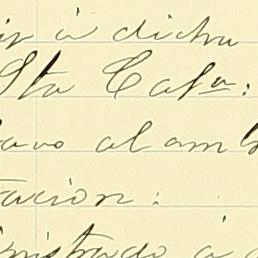 á dicha
Sta Cat^a:
al am
tación:
nistrado á